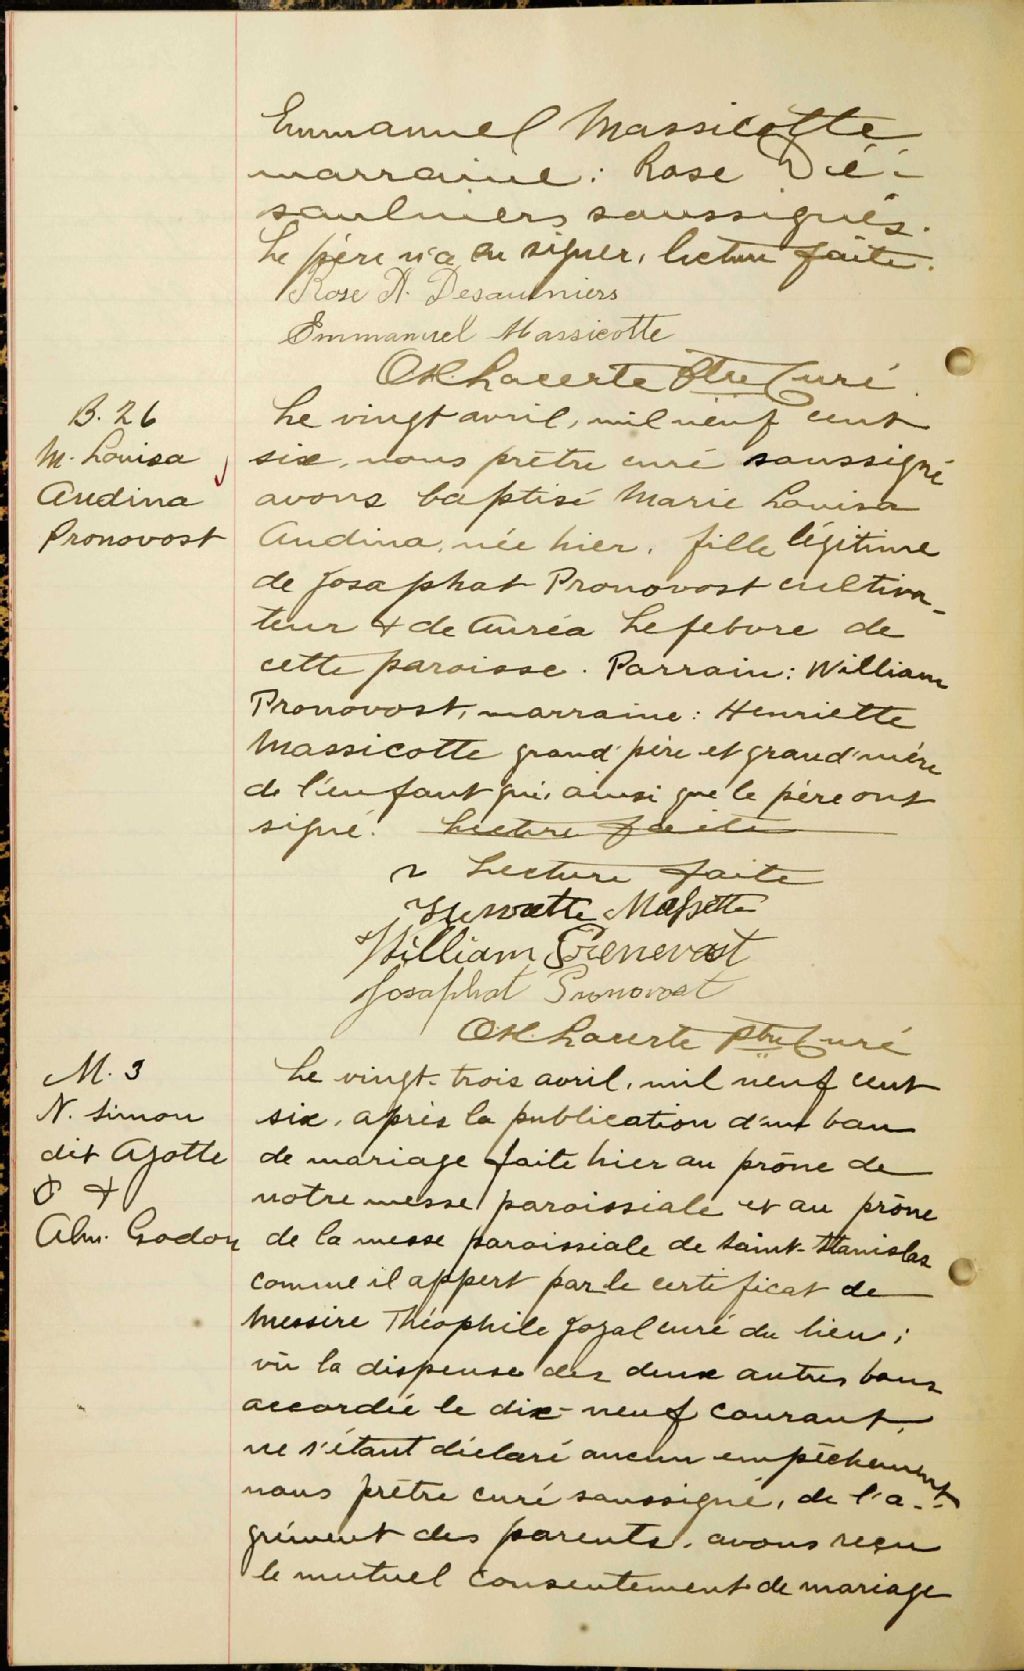 Emmanuel Massicotte
marraine: Rose Dé-
saulniers soussignés.
Le père n'a su signer, lecture faite.
Rose A. Desaulniers
Emmanuel Massicotte
Lacerte Ptre Curé
B. 26
M. Louisa
Audina
Pronovost
Le vingt avril, mil neuf cent
six, nous prêtre curé soussigné
avons baptisé Marie Louisa
Audina, née hier, fille légitime
de Josaphat Pronovost cultiva-
teur & de Auréa Lefebvre de
cette paroisse. Parrain: William
Pronovost, marraine: Henriette
Massicotte grand'père et grand'mère
de l'enfant qui, ainsi que le père ont
signé. Lecture faite
Lecture faite
William
Josaphat Pronovost
Lacerte ptre Curé
M. 3
N. Simon
dit Ajotte
&
Alm. Godon
Le vingt-trois avril, mil neuf cent
six, après la publication d'un ban
de mariage faite hier au prône de
notre messe paroissiale et au prône
de la messe paroissiale de Saint-Stanislas
comme il appert par le certificat de
Messire Théophile Joyal curé du lieu;
vû la dispense des deux autres bans
accordée le dix-neuf courant,
ne s'étant déclaré aucun empêchement
nous prêtre curé soussigné, de l'a-
grément des parents, avons reçu
le mutuel consentement de mariage